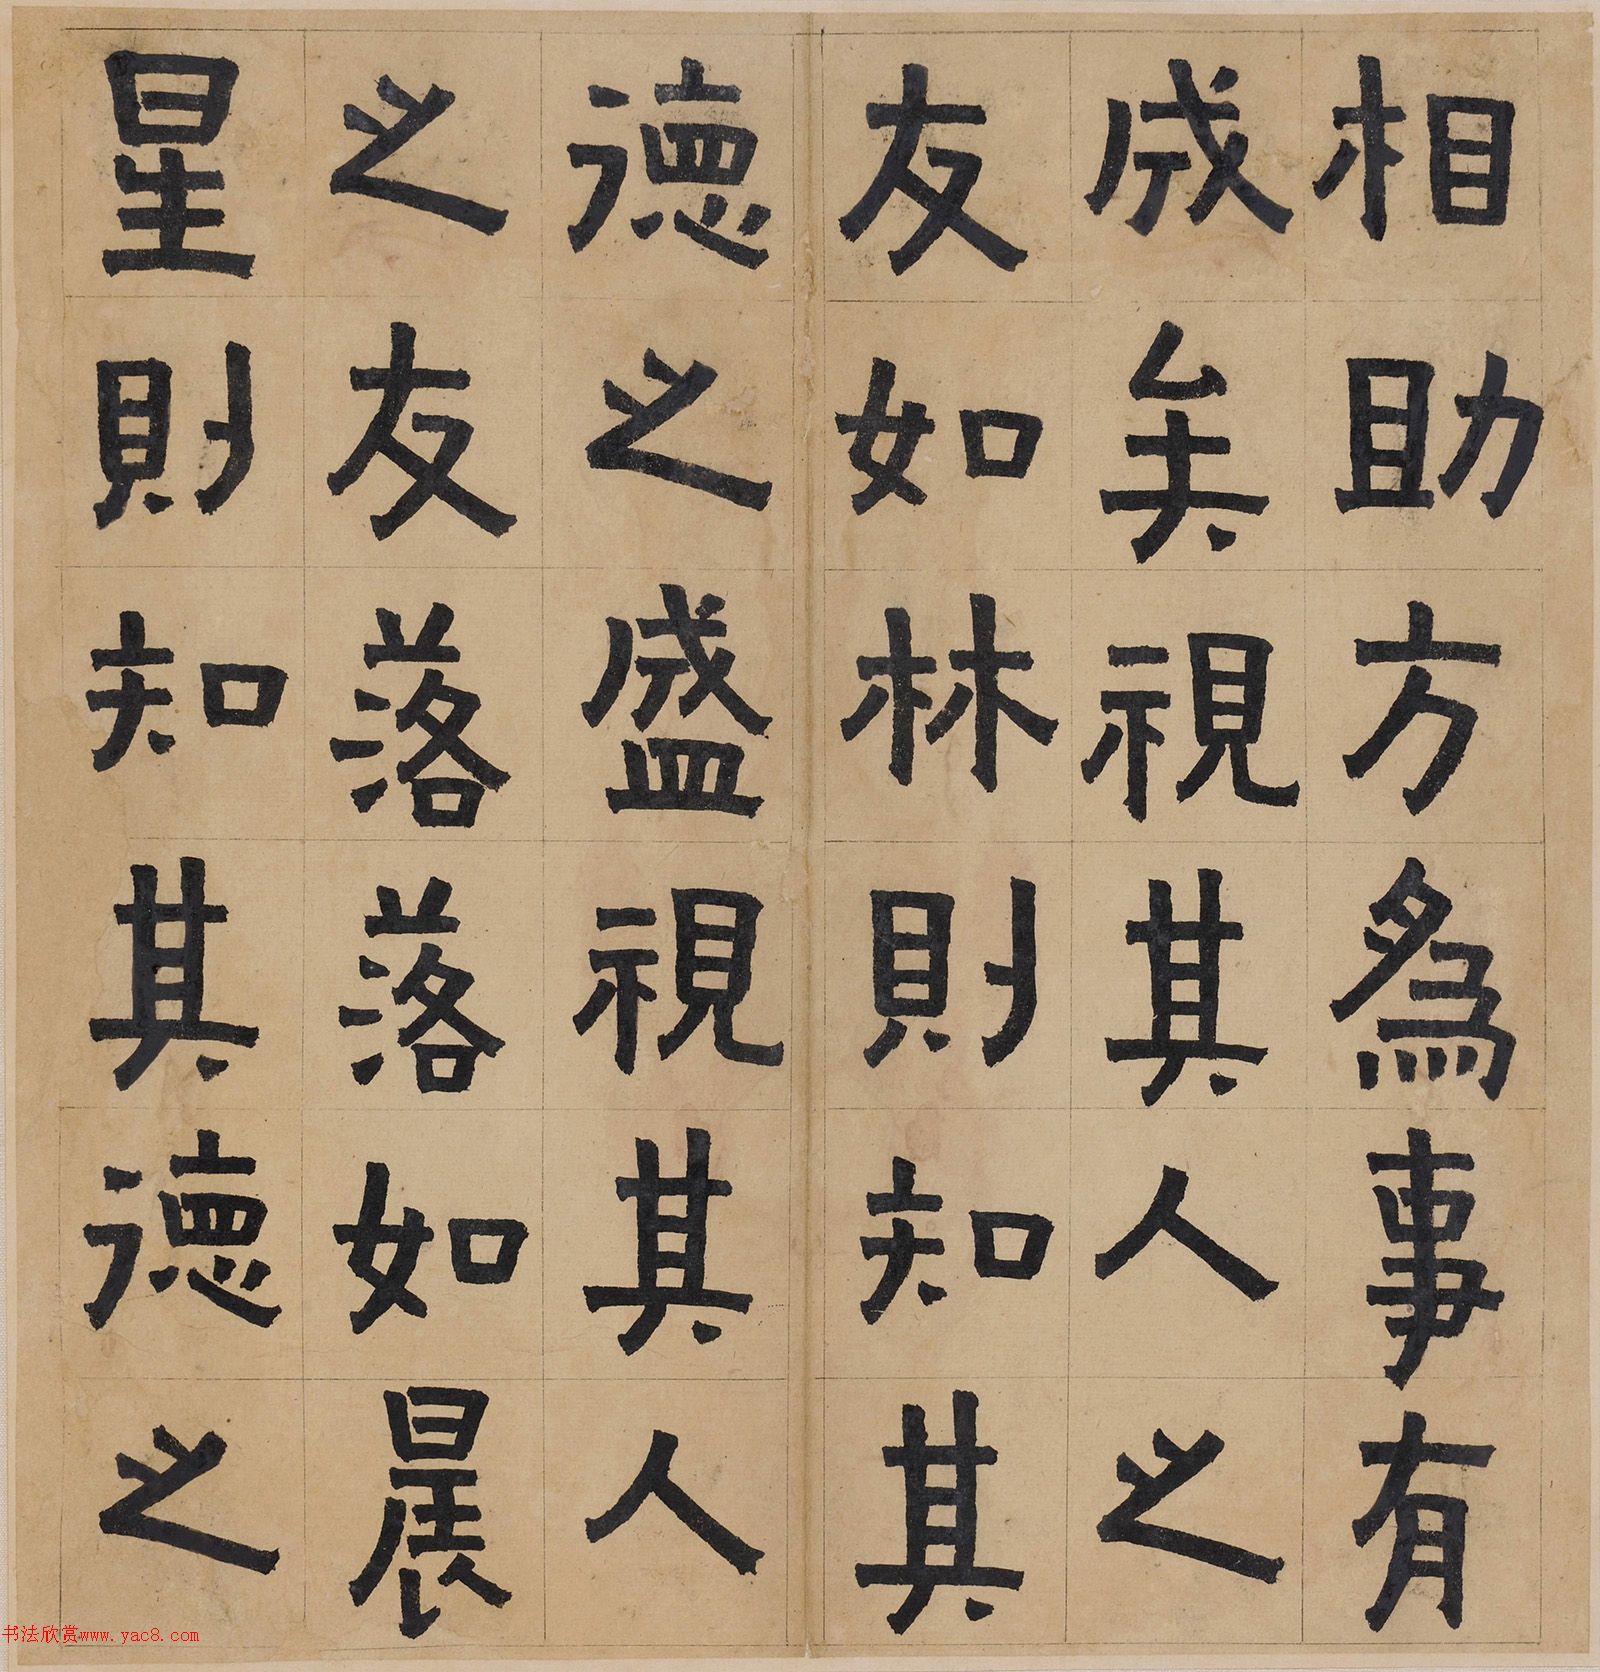 相助方爲事有
成矣視其人之
友如林則知其
德之盛視其人
之友落落如晨
星則知其德之
书法欣赏www.yac8.com